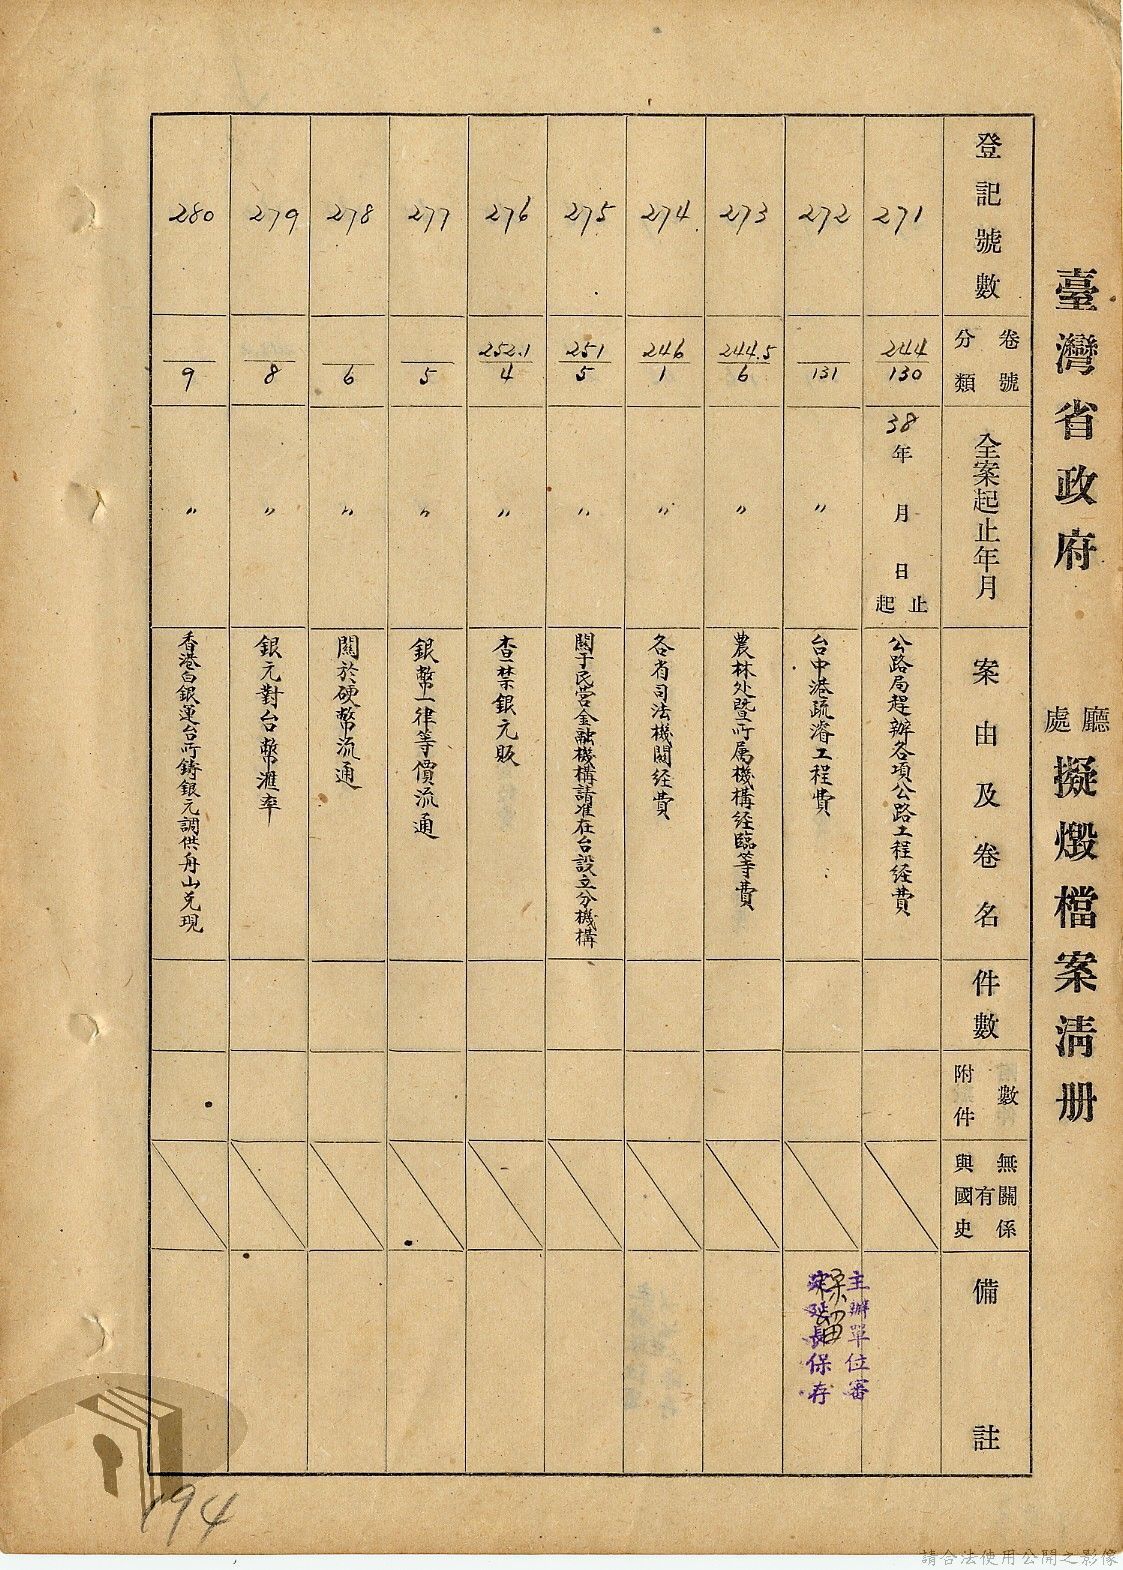 臺灣省政府 廳處 擬燬檔案清册
登記號數
分類 卷號
全案起止年月
案由及卷名
件數
附件 數
與國史 有 無關係
備註
271
244
130
38年 月 日 起 止
公路局趕辦各項公路工程経費
272
131
〃
台中港疏濬工程費
主辦單位審定延長保存
保留
273
244.5
6
〃
農林处暨所属機構経臨等費
274
246
1
〃
各省司法機関経費
275
251
5
〃
関于民营金融機構請准在台設立分機構
276
252.1
4
〃
查禁銀元販
277
5
〃
銀幣一律等價流通
278
6
〃
關於硬幣流通
279
8
〃
銀元對台幣滙率
280
9
〃
香港白銀運台所鋳銀元調供舟山兑現
194
請合法使用公開之影像